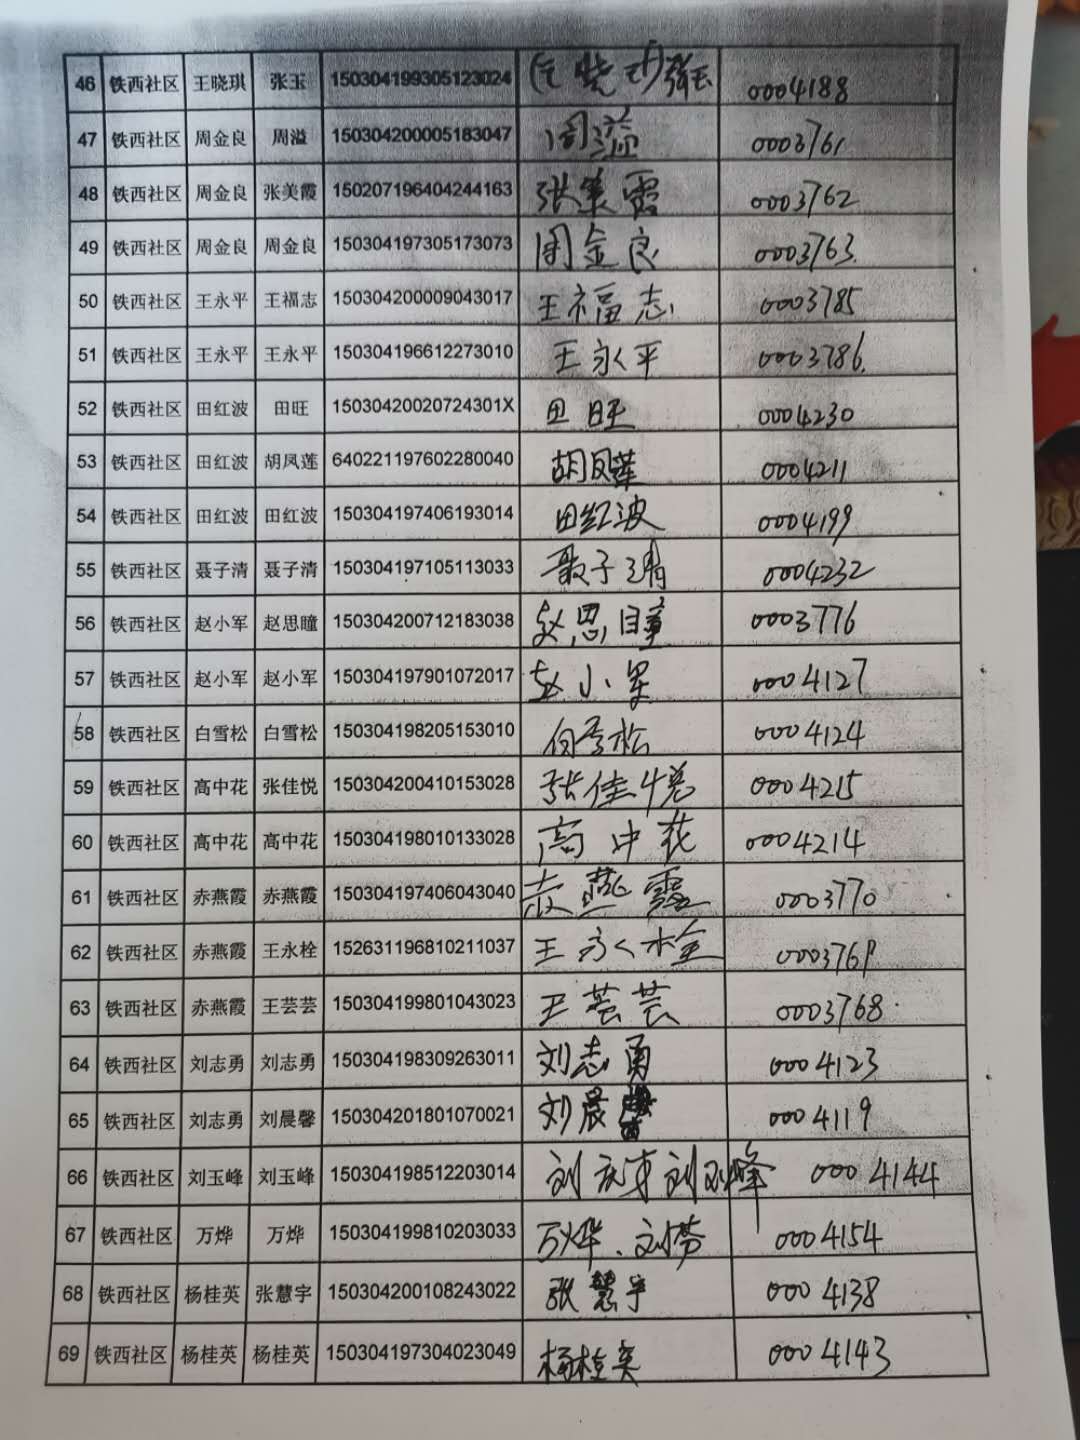 46 铁西社区 王晓琪 张玉 150304199305123024 张玉 0004188
47 铁西社区 周金良 周溢 150304200005183047 周溢 0003761
48 铁西社区 周金良 张美霞 150207196404244163 张美霞 0003762
49 铁西社区 周金良 周金良 150304197305173073 周金良 0003763
50 铁西社区 王永平 王福志 150304200009043017 王福志 0003785
51 铁西社区 王永平 王永平 150304196612273010 王永平 0003786
52 铁西社区 田红波 田旺 15030420020724301X 田旺 0004230
53 铁西社区 田红波 胡凤莲 640221197602280040 胡凤莲 0004211
54 铁西社区 田红波 田红波 150304197406193014 田红波 0004199
55 铁西社区 聂子清 聂子清 150304197105113033 聂子清 0004232
56 铁西社区 赵小军 赵思瞳 150304200712183038 赵思瞳 0003776
57 铁西社区 赵小军 赵小军 150304197901072017 赵小军 0004127
58 铁西社区 白雪松 白雪松 150304198205153010 白雪松 0004124
59 铁西社区 高中花 张佳悦 150304200410153028 张佳悦 0004215
60 铁西社区 高中花 高中花 150304198010133028 高中花 0004214
61 铁西社区 赤燕霞 赤燕霞 150304197406043040 赤燕霞 0003770
62 铁西社区 赤燕霞 王永栓 152631196810211037 王永栓 0003769
63 铁西社区 赤燕霞 王芸芸 150304199801043023 王芸芸 0003768
64 铁西社区 刘志勇 刘志勇 150304198309263011 刘志勇 0004123
65 铁西社区 刘志勇 刘晨馨 150304201801070021 刘晨 0004119
66 铁西社区 刘玉峰 刘玉峰 150304198512203014 刘玉峰 0004144
67 铁西社区 万烨 万烨 150304199810203033 万烨、刘芬 0004154
68 铁西社区 杨桂英 张慧宇 150304200108243022 张慧宇 0004138
69 铁西社区 杨桂英 杨桂英 150304197304023049 杨桂英 0004143